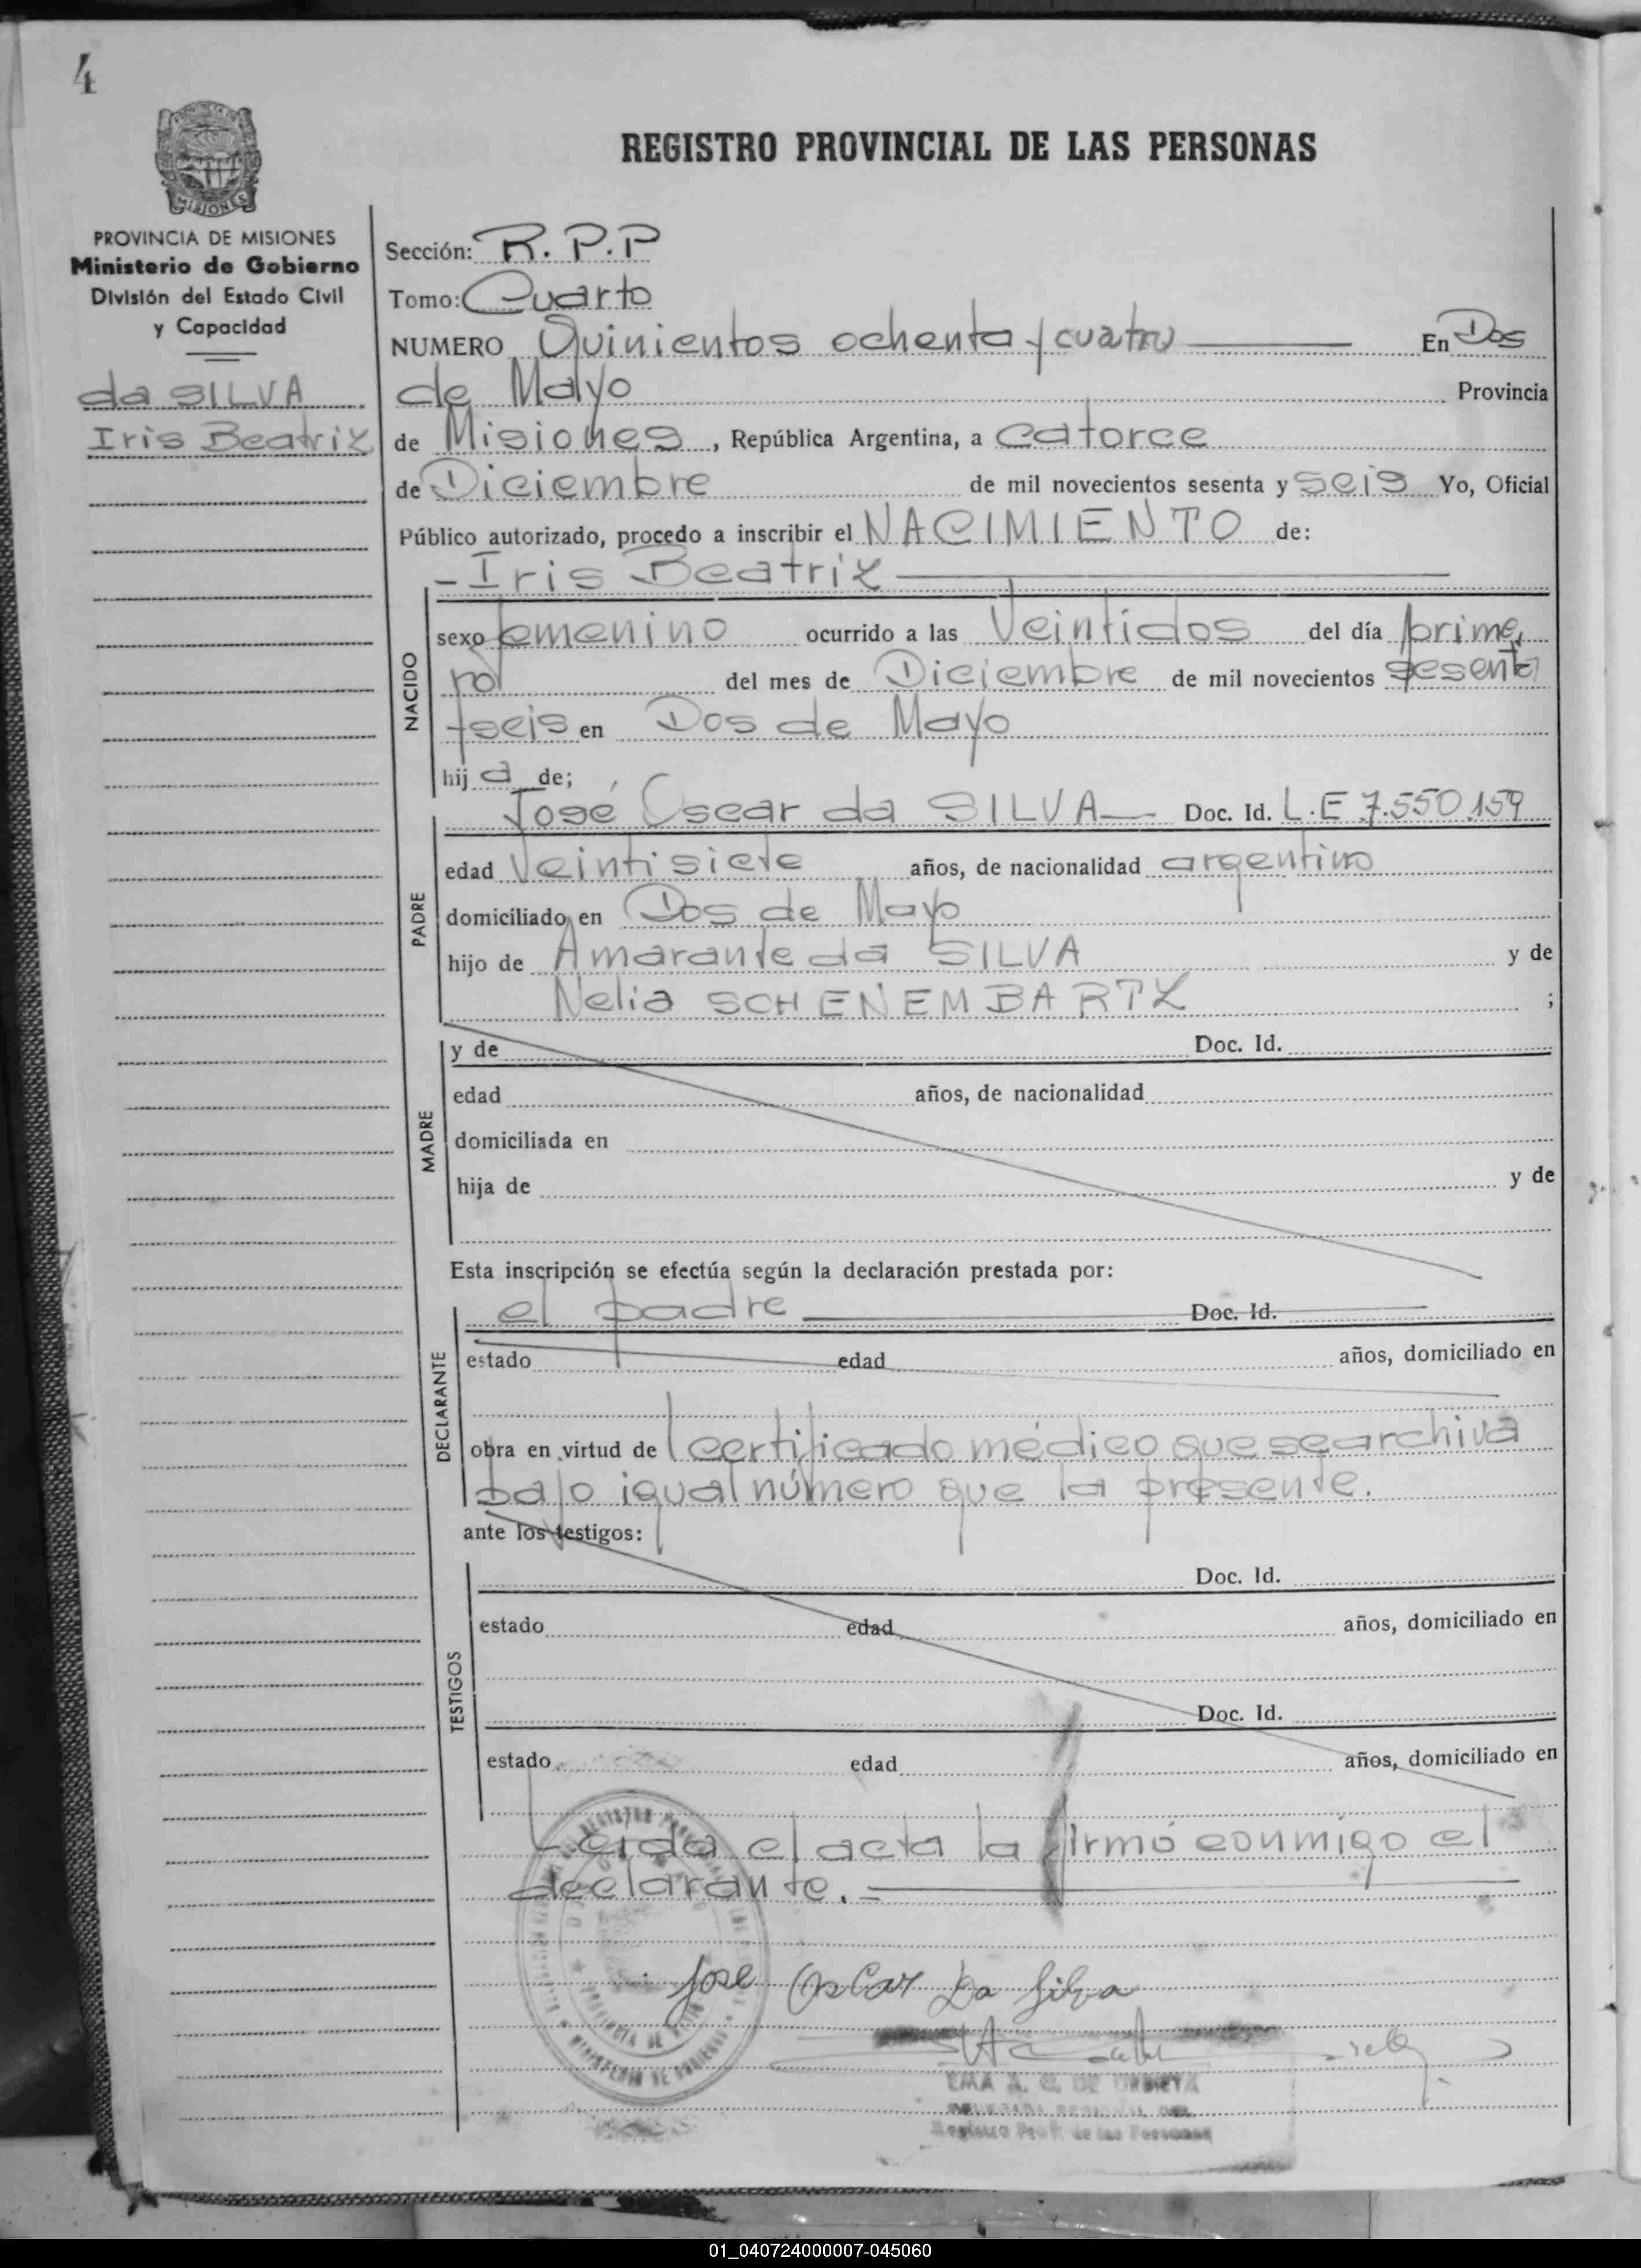 4
MISIONES
REGISTRO PROVINCIAL DE LAS PERSONAS
PROVINCIA DE MISIONES
Ministerio de Gobierno
División del Estado Civil
y Capacidad
da SILVA
Iris Beatriz
Sección: R.P.P
Tomo: Cuarto
NUMERO Quinientos ochenta y cuatro En Dos
de Mayo Provincia
de Misiones, República Argentina, a catorce
de Diciembre de mil novecientos sesenta y seis Yo, Oficial
Público autorizado, procedo a inscribir el NACIMIENTO de:
- Iris Beatriz
NACIDO
sexo femenino ocurrido a las Veintidos del día prime
ro del mes de Diciembre de mil novecientos sesenta
y seis en Dos de Mayo
hij a de;
PADRE
José Oscar da SILVA Doc. Id. L.E 7.550.159
edad Veintisiete años, de nacionalidad argentino
domiciliado en Dos de Mayo
hijo de Amarante da SILVA y de
Nelia SCHENEMBARTZ ;
MADRE
y de Doc. Id.
edad años, de nacionalidad
domiciliada en
hija de y de
Esta inscripción se efectúa según la declaración prestada por:
DECLARANTE
el padre Doc. Id.
estado edad años, domiciliado en
obra en virtud de certificado médico que se archiva
bajo igual número que la presente.
ante los testigos:
TESTIGOS
Doc. Id.
estado edad años, domiciliado en
Doc. Id.
estado edad años, domiciliado en
Leida el acta la firmó conmigo el
declarante.-
Jose Oscar Da Silva
EMA A. G. DE URRIETA
Registro Prov. de las Personas
01_040724000007-045060